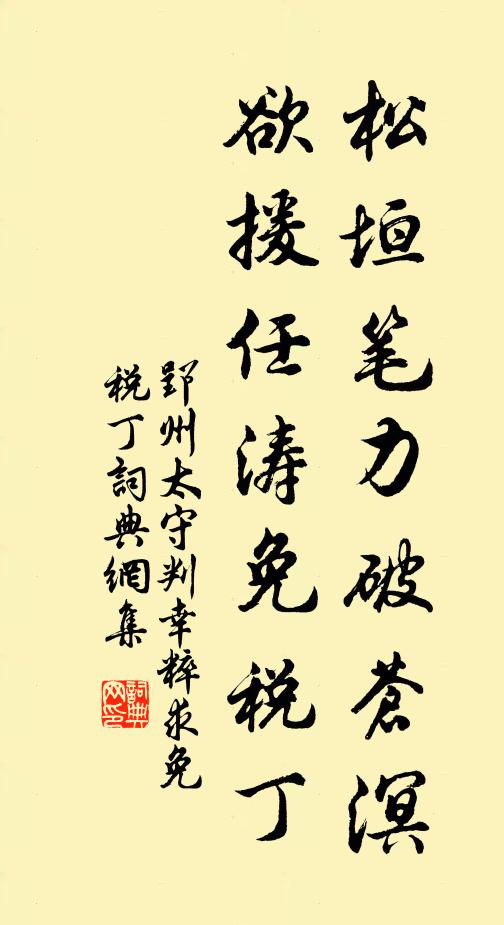 松垣笔力破苍溟
欲援任涛免税丁
郢州太守判幸粹求免
税丁詞典網集
詞典
网印